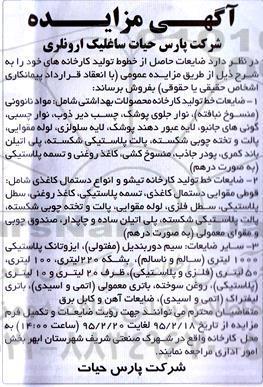 آگهی مزایده
شرکت پارس حیات ساغلیک ارونلری
در نظر دارد ضایعات حاصل از خطوط تولید کارخانه های خود را به
شرح ذیل از طریق مزایده عمومی (با انعقاد قرارداد پیمانکاری
اشخاص حقیقی یا حقوقی) بفروش برساند:
۱- ضایعات خط تولید کارخانه محصولات بهداشتی شامل: مواد نانوونی
(منسوج نبافته)، نوار جلوی پوشک، چسب دیر ذوب، نوار چسبی،
گونی های جانبو، لایه عبور دهند پوشک، لایه سلولزی، لوله مقوایی،
پالت و تخته چوبی شکسته، پالت پلاستیکی شکسته، پلی اتیلن
باند کمری، پودر جاذب، منسوخ کشی، کاغذ روغنی و تسمه پلاستیکی
(به صورت درهم)
۲- ضایعات خط تولید کارخانه تیشو و انواع دستمال کاغذی شامل:
قوطی مقوایی دستمال کاغذی، تسمه پلاستیکی، کاغذ روغنی، سطل
پلاستیکی، سطل فلزی، لوله مقوایی، پالت و تخته چوبی شکسته
پالت پلاستیکی شکسته، پلی اتیلن ساده و چاپدار، صندوق چوبی
و مقوای معمولی (به صورت درهم)
۳- سایر ضایعات: سیم دوربندیل (مفتولی)، ایزوتانک پلاستیکی
۱۰۰۰ لیتری (سالم و ناسالم)، بشکه ۲۲۰ لیتری، ۱۰۰ لیتری،
۵۰ لیتری (فلزی و پلاستیکی)، ظرف ۲۰ لیتری و ۱۰ لیتری
(پلاستیکی)، روغن سوخته، باتری معمولی (اتمی و اسیدی)، باتری
لیفتراک (اتمی و اسیدی)، ضایعات آهن و کابل برق
متقاضیان محترم می توانند جهت رویت ضایعات و تکمیل فرم
مزایده از تاریخ ۹۵/۲/۱۸ لغایت ۹۵/۲/۲۰ (ساعت ۱۴:۰۰) به
محل کارخانه واقع در شهرک صنعتی شریف شهرستان ابهر بخش
امور اداری مراجعه نمایند.
شرکت پارس حیات